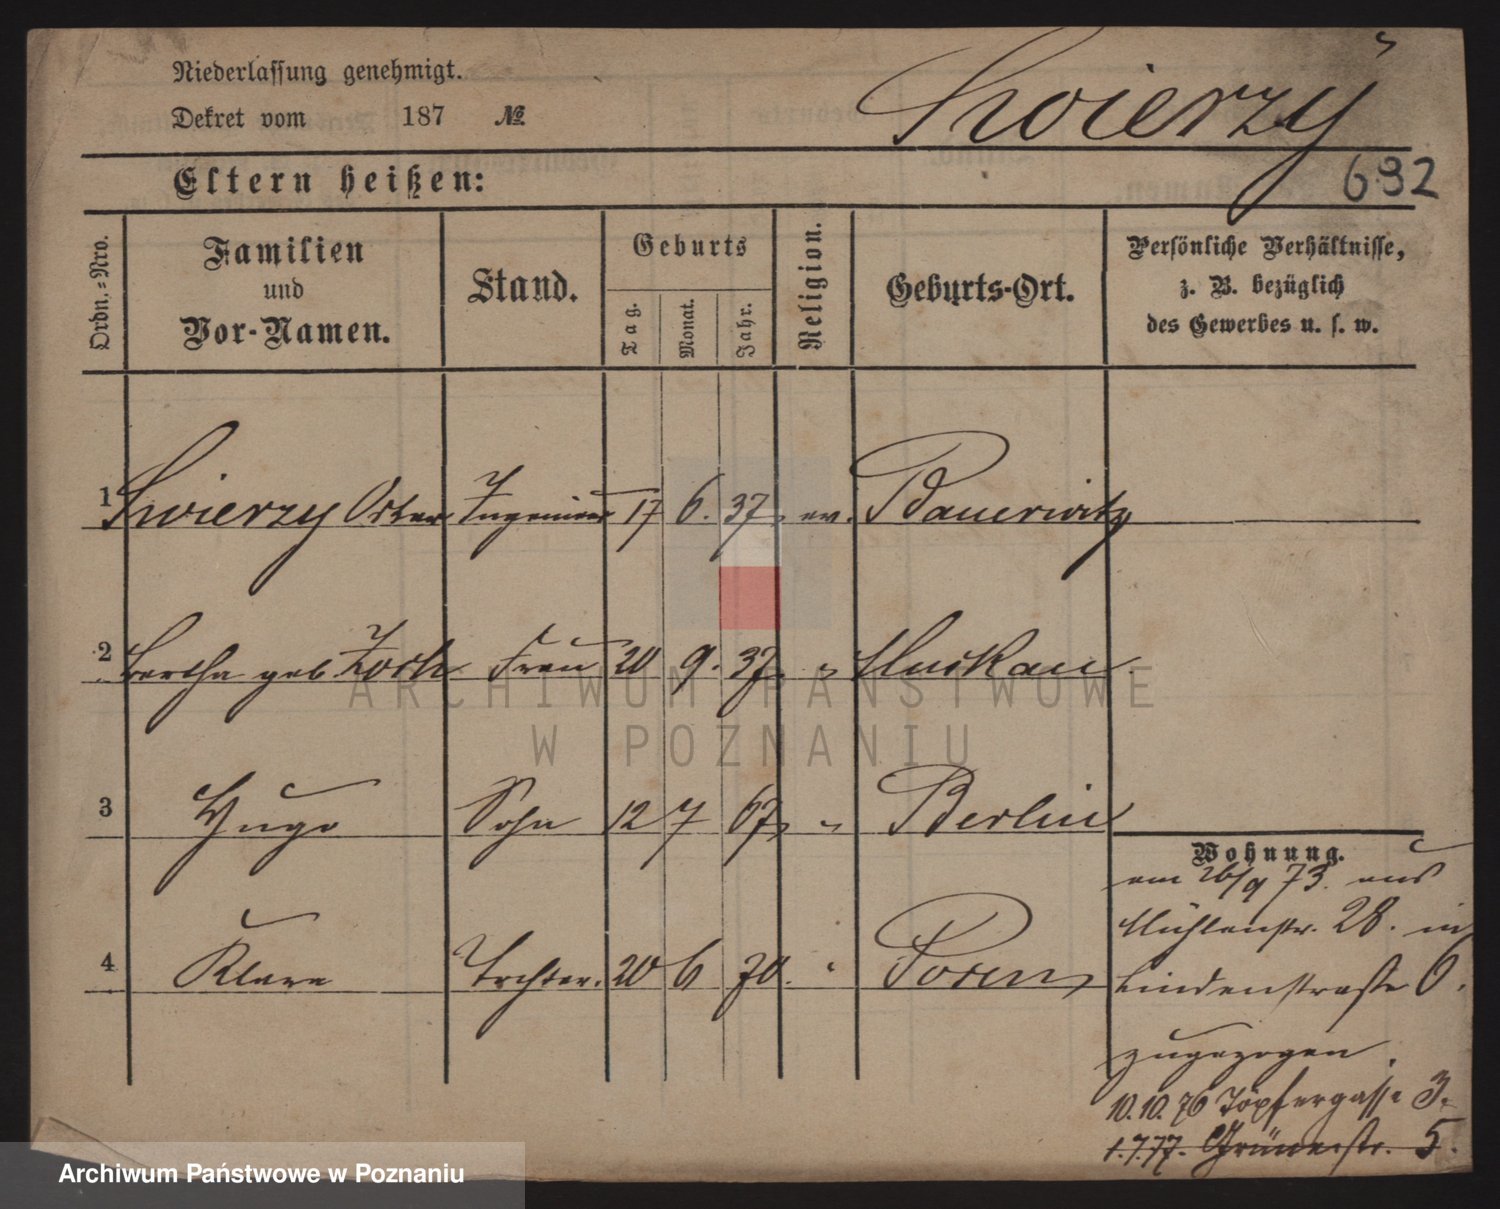 Niederlassung genehmigt.
Dekret vom 187 №
Swierzy
632
Eltern heißen:
Ordn.-Nro.
Familien
und
Vor-Namen.
Stand.
Geburts
Tag.
Monat.
Jahr.
Religion.
Geburts-Ort.
Persönliche Verhältnisse,
z. B. bezüglich
des Gewerbes u. s. w.
1 Swierzy Oskar Ingenieur 17 6. 37 ev. Bauerwitz
2 Bertha geb Frau 20 9. 37 " Muskau
3 Hugo Sohn 12 7 67 " Berlin
4 Klara Tochter. 20 6 70. " Posen
Wohnung.
am 26/9 73. aus
Mühlenstr. 28. in
Lindenstraße 6.
zugezogen.
10.10.76 Töpfergasse 3.
1.7.77. Grünestr. 5.
ARCHIWUM PAŃSTWOWE
W POZNANIU
Archiwum Państwowe w Poznaniu